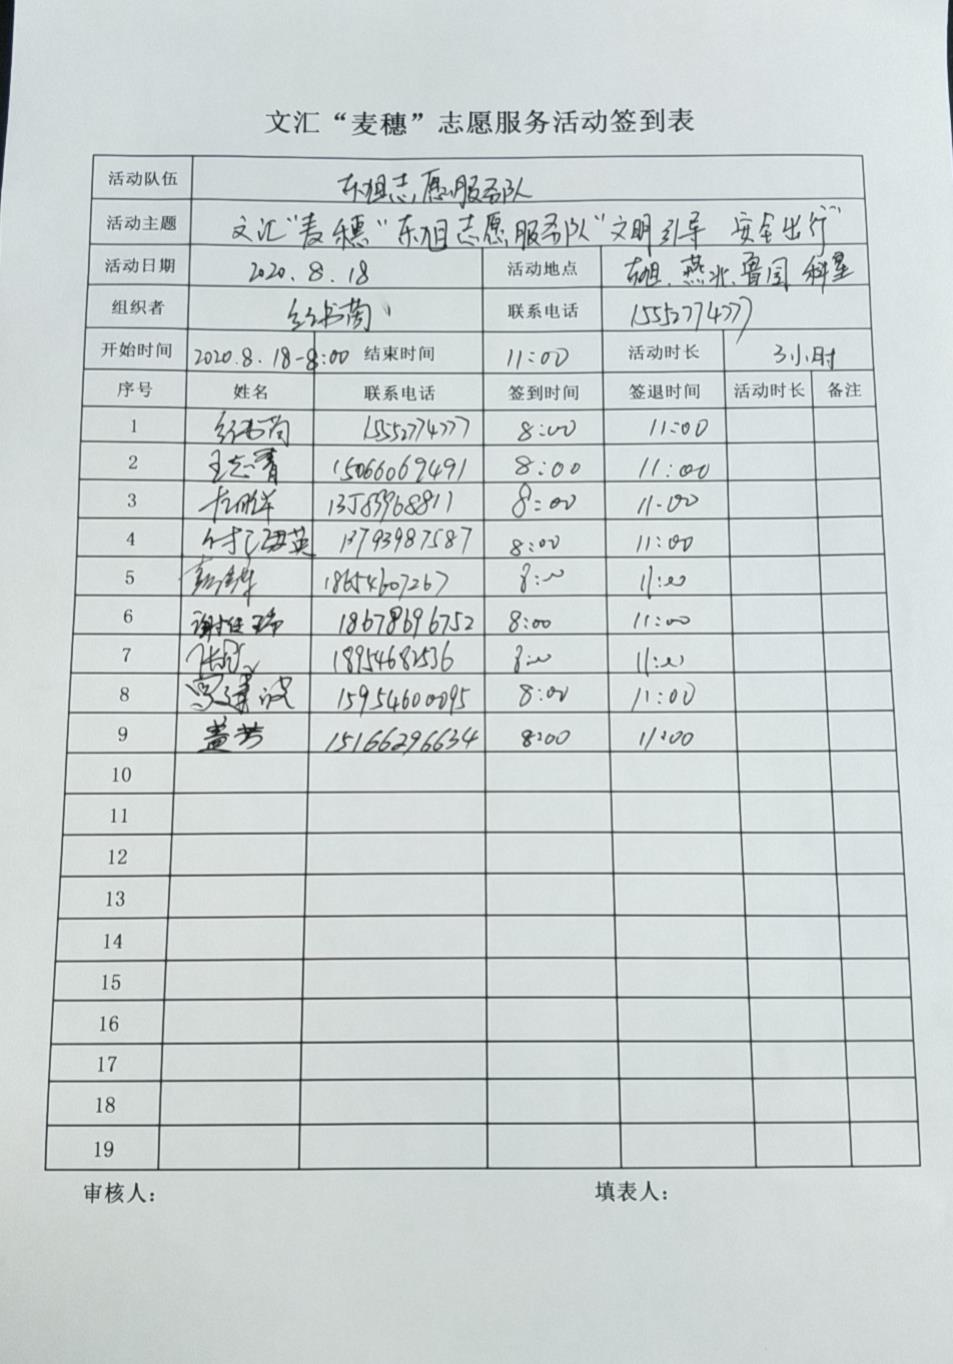 文汇“麦穗”志愿服务活动签到表
活动队伍 东旭志愿服务队
活动主题 文汇“麦穗”东旭志愿服务队“文明引导 安全出行”
活动日期 2020.8.18 活动地点 东旭、燕北、鲁园、科星
组织者 联系电话 15552774777
开始时间 2020.8.18-8:00 结束时间 11:00 活动时长 3小时
序号 姓名 联系电话 签到时间 签退时间 活动时长 备注
1 15552774777 8:00 11:00
2 王志青 15066069491 8:00 11:00
3 8:00 11:00
4 13793987587 8:00 11:00
5 18654607267 8:00 11:00
6 18678696752 8:00 11:00
7 18954682536 8:00 11:00
8 15954600095 8:00 11:00
9 盖芳 15166296634 8:00 11:00
10
11
12
13
14
15
16
17
18
19
审核人： 填表人：